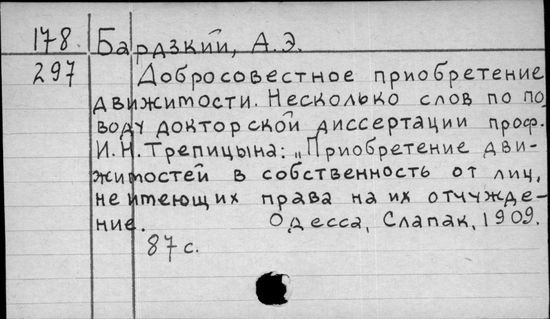 178. Бардзкий, А.Э.
297 Добросовестное приобретение
движимости. Несколько слов по по
воду докторской диссертации проф.
И.Н. Трепицына: „Приобретение дви-
жимостей в собственность от лиц,
не имеющих права на их отчужде-
ние. Одесса, Слапак, 1909.
87 с.